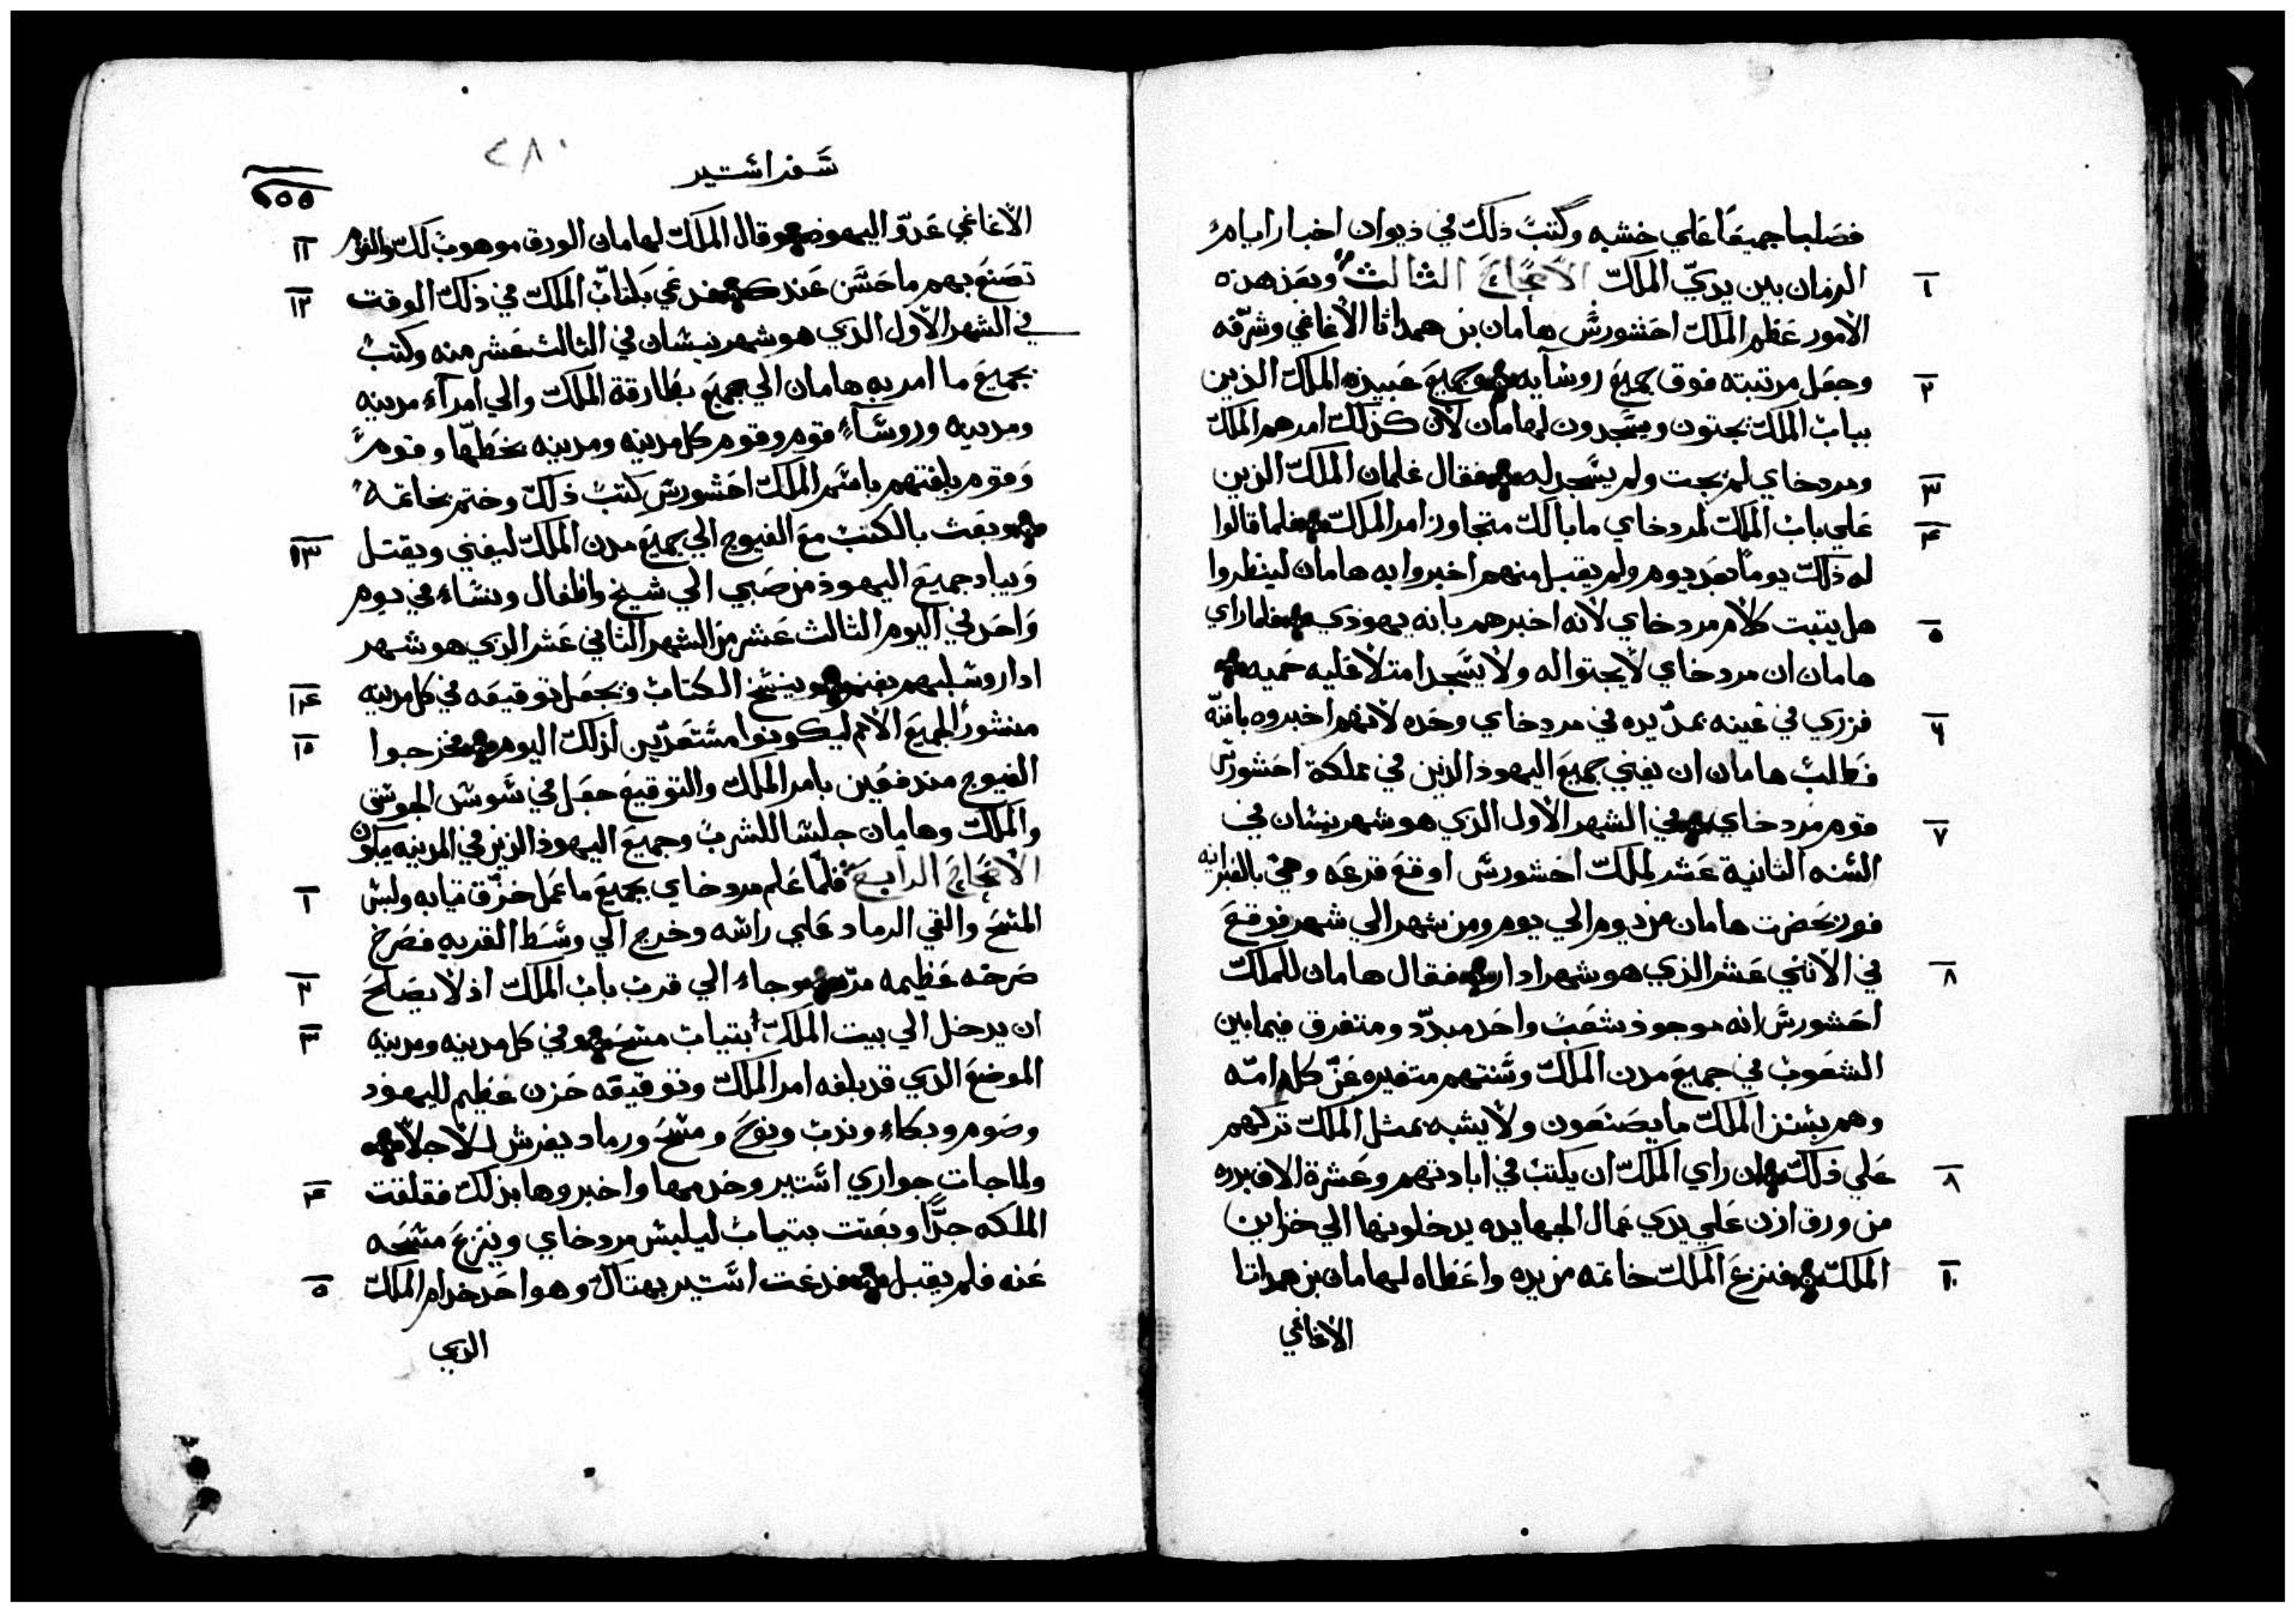 فصلبا جميعًا علي خشبه وكتب ذلك في ذيوان اخبار ايام
الزمان بين يدي الملك الاصحاح الثالث وبعد هذه
١
الامور عظم الملك احشورش هامان بن همداثا الاغاغي وشرّفه
وجعل مرتبته فوق جميع روسآيه وجميع عبيده الملك الذين
٢
بباب الملك يجتون ويسجدون لهامان لان كذلك امرهم الملك
ومردخاي لم يجت ولم يسجد له فقال غلمان الملك الذين
٣
علي باب الملك لمردخاي ما بالك متجاوز امر الملك فلما قالوا
٤
له ذلك يومًا بعد يوم ولم يقبل منهم اخبروا به هامان لينظروا
هل يتبت كلام مردخاي لانه اخبرهم بانه يهوذي فلما راي
٥
هامان ان مردخاي لا يجتوا له ولا يسجد امتلا عليه حميه
فزري في عينه بمدّ يده في مردخاي وحده لانهم اخبروه بانه
٦
فطلب هامان ان يفني جميع اليهوذ الذين في مملكة احشورش
قوم مردخاي في الشهر الاول الذي هو شهر نيسان في
٧
السنه الثانية عشر لملك احشورش اوقع قرعه وهي بالعبرانيه
فور بحضرت هامان من يوم الي يوم ومن شهر الي شهر فوقع
في الاثني عشر الذي هو شهر ادار فقال هامان للملك
٨
احشورش انه موجوذ شعب واحد مبدّد ومتفرق فيما بين
الشعوب في جميع مدن الملك وسنتهم متغيره عن كل امّه
وهم بسنن الملك ما يصنعون ولا يشبه بمثل الملك تركهم
علي ذلك ان راي الملك ان يكتب في ابادتهم وعشرة الاف بدره
٨
من ورق ازن علي يدي عمال الجهابده يدخلونها الي خزاين
الملك فنزع الملك خاتمه من يده واعطاه لهامان بن همداتا
١٠
الاغاغي
٢٨٠
سفر استير
٢٥٥
الاغاغي عدوّ اليهوذ وقال الملك لهامان الورق موهوب لك والقوم
١١
تصنع بهم ما حسن عندك فدعي بكتاب الملك في ذلك الوقت
١٢
في الشهر الاول الذي هو شهر نيسان في الثالث عشر منه وكتب
بجميع ما امر به هامان الي جميع بطارقة الملك والي امرآء مدينه
ومدينه وروسآء قوم وقوم كل مدينه ومدينه بخطها وقوم
وقوم بلغتهم باسم الملك احشورش كتب ذلك وختم بخاتمه
وبعث بالكتب مع الفيوج الي جميع مدن الملك ليفني ويقتل
١٣
ويباد جميع اليهوذ من صبي الي شيخ واطفال ونساء في يوم
واحد في اليوم الثالث عشر من الشهر الثاني عشر الذي هو شهر
ادار وسلبهم يغنم وينسخ الكتاب ويجعل توقيعه في كل مدينه
١٤
منشورًا لجميع الامم ليكونوا مستعدّين لذلك اليوم فخرجوا
١٥
الفيوج مندفعين بامر الملك والتوقيع جعل في سوسن الجوسق
والملك وهامان جلسا للشرب وجميع اليهوذ الذين في المدينه يبكون
الاصحاح الرابع فلما علم مردخاي بجميع ما عمل خزّق تيابه ولبس
١
المسح والقي الرماد علي راسه وخرج الي وسط القريه فصرخ
صرخه عظيمه مرّه وجاء الي قرب باب الملك اذ لا يصلح
٢
ان يدخل الي بيت الملك بتياب مسح وفي كل مدينه ومدينه
٣
الموضع الذي قد بلغه امر الملك وتوقيعه حزن عظيم لليهوذ
وصوم وبكاء وندب ونوح ومسح ورماد يفرش للاجلا
ولما جات جواري استير وخدمها واخبروها بذلك فقلقت
٤
الملكه جدًّا وبعتت بتياب ليلبس مردخاي وينزع مسحه
عنه فلم يقبل فدعت استير بهتاك وهو احد خدام الملك
٥
الذي